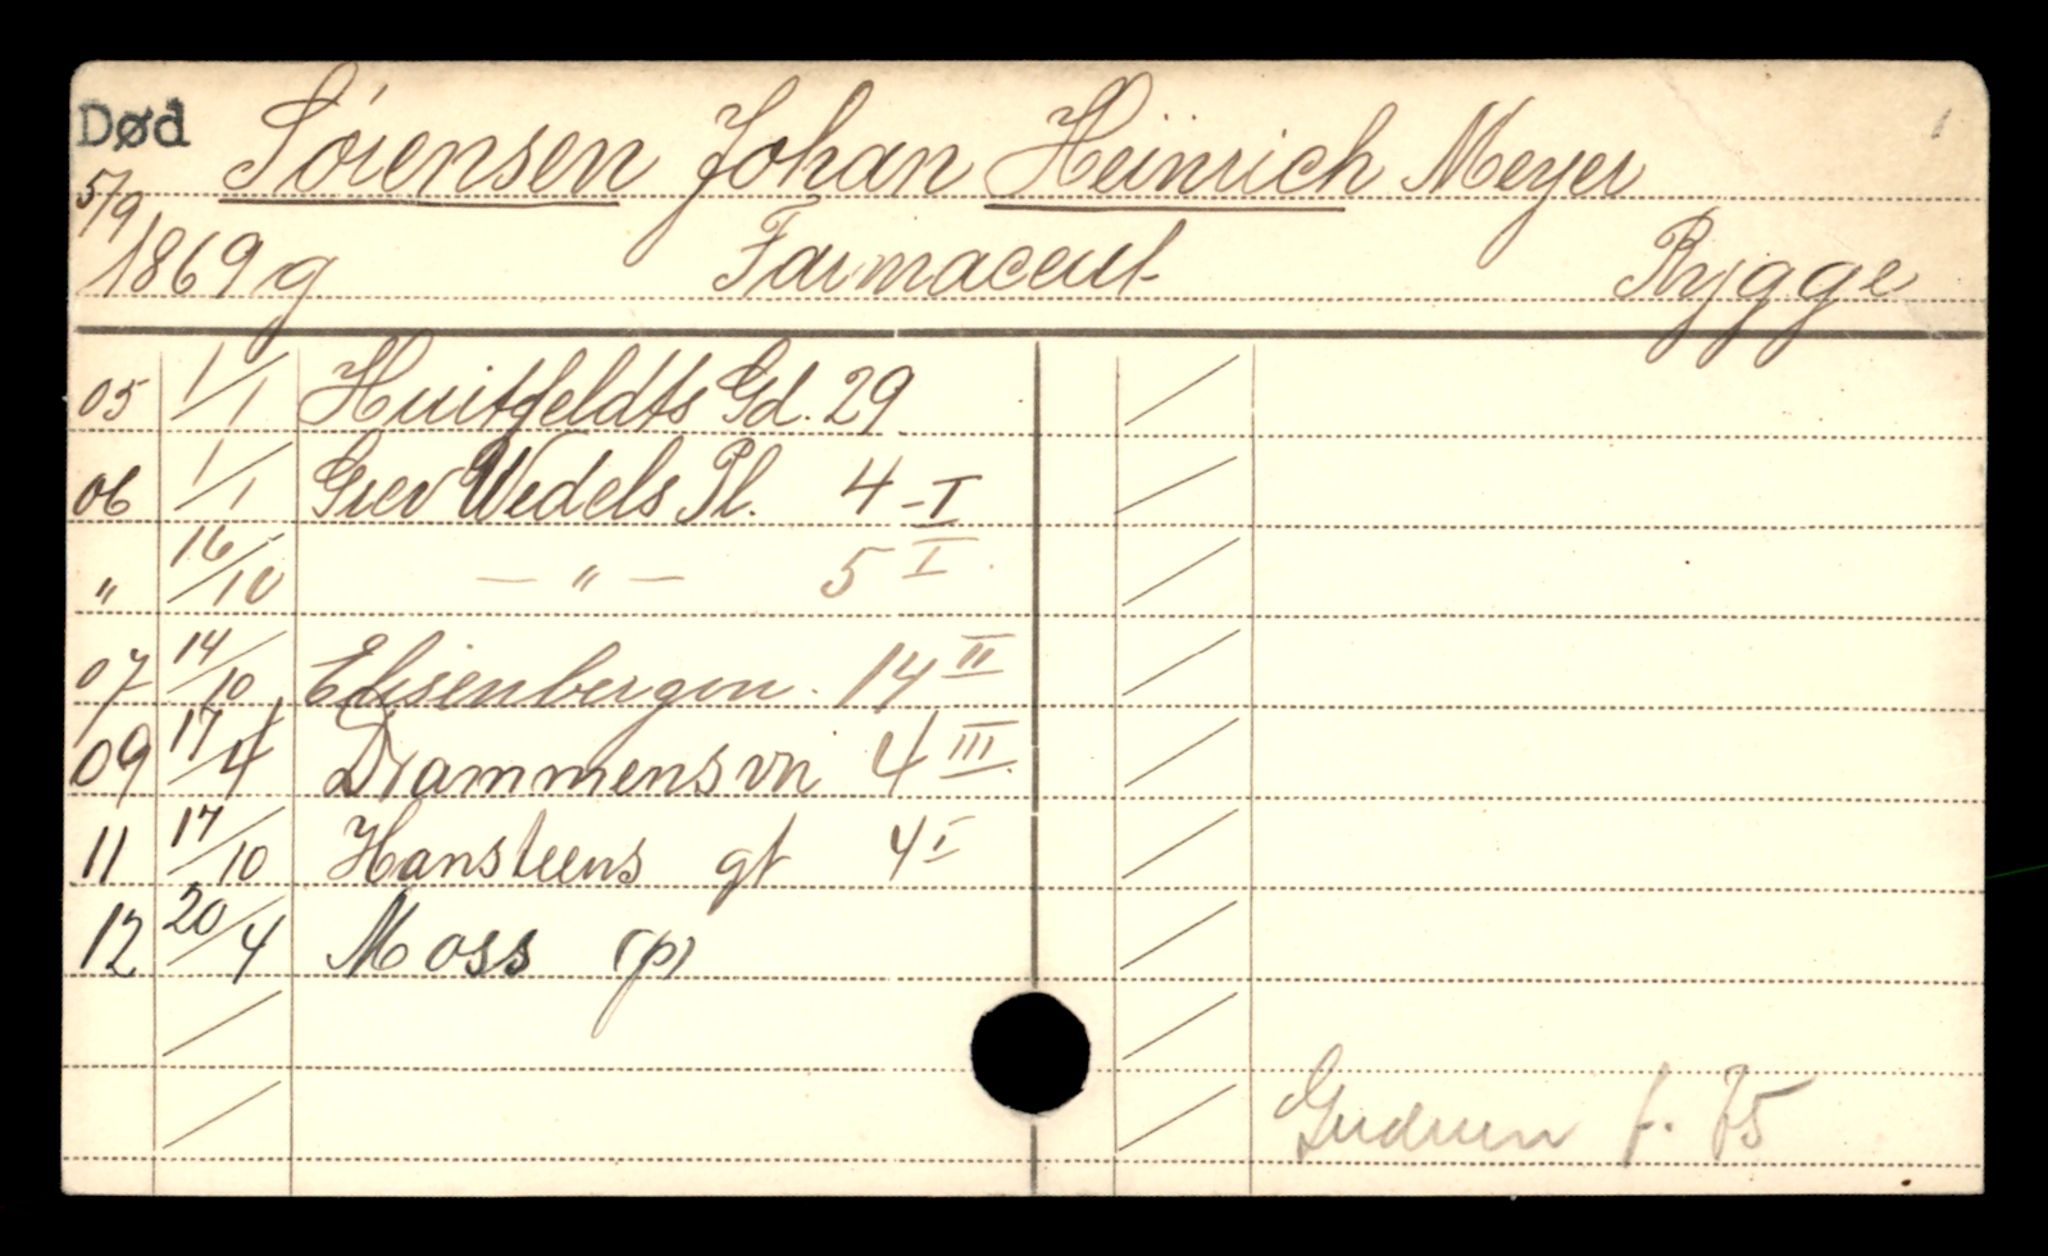 Død Sörensen Johan Heinrich Meyer
5/9
1869 g Farmaceut Rygge
05 1/1 Huitfeldts Gd. 29
06 1/1 Grev Wedels Pl. 4 - I
" 16/10 — " — 5 I
07 14/10 Elisenbergvn. 14 II
09 17/4 Drammensvn 4 III
11 17/10 Hansteens gt 4 I
12 20/4 Moss (p)
Gudrun f. 75